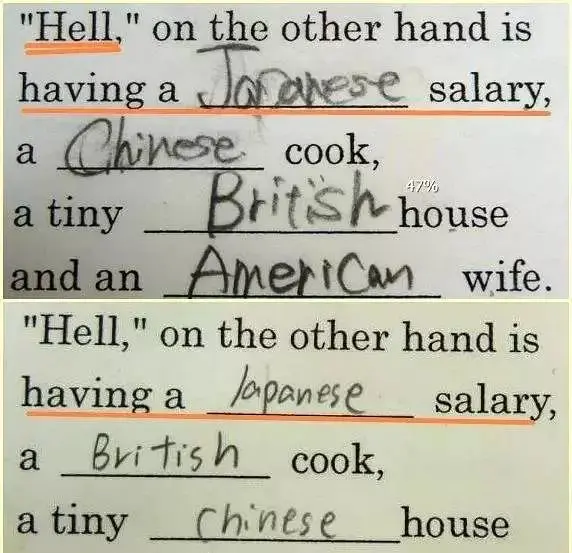 "Hell," on the other hand is
having a Japanese salary,
a Chinese cook,
47%
a tiny British house
and an American wife.
"Hell," on the other hand is
having a Japanese salary,
a British cook,
a tiny Chinese house